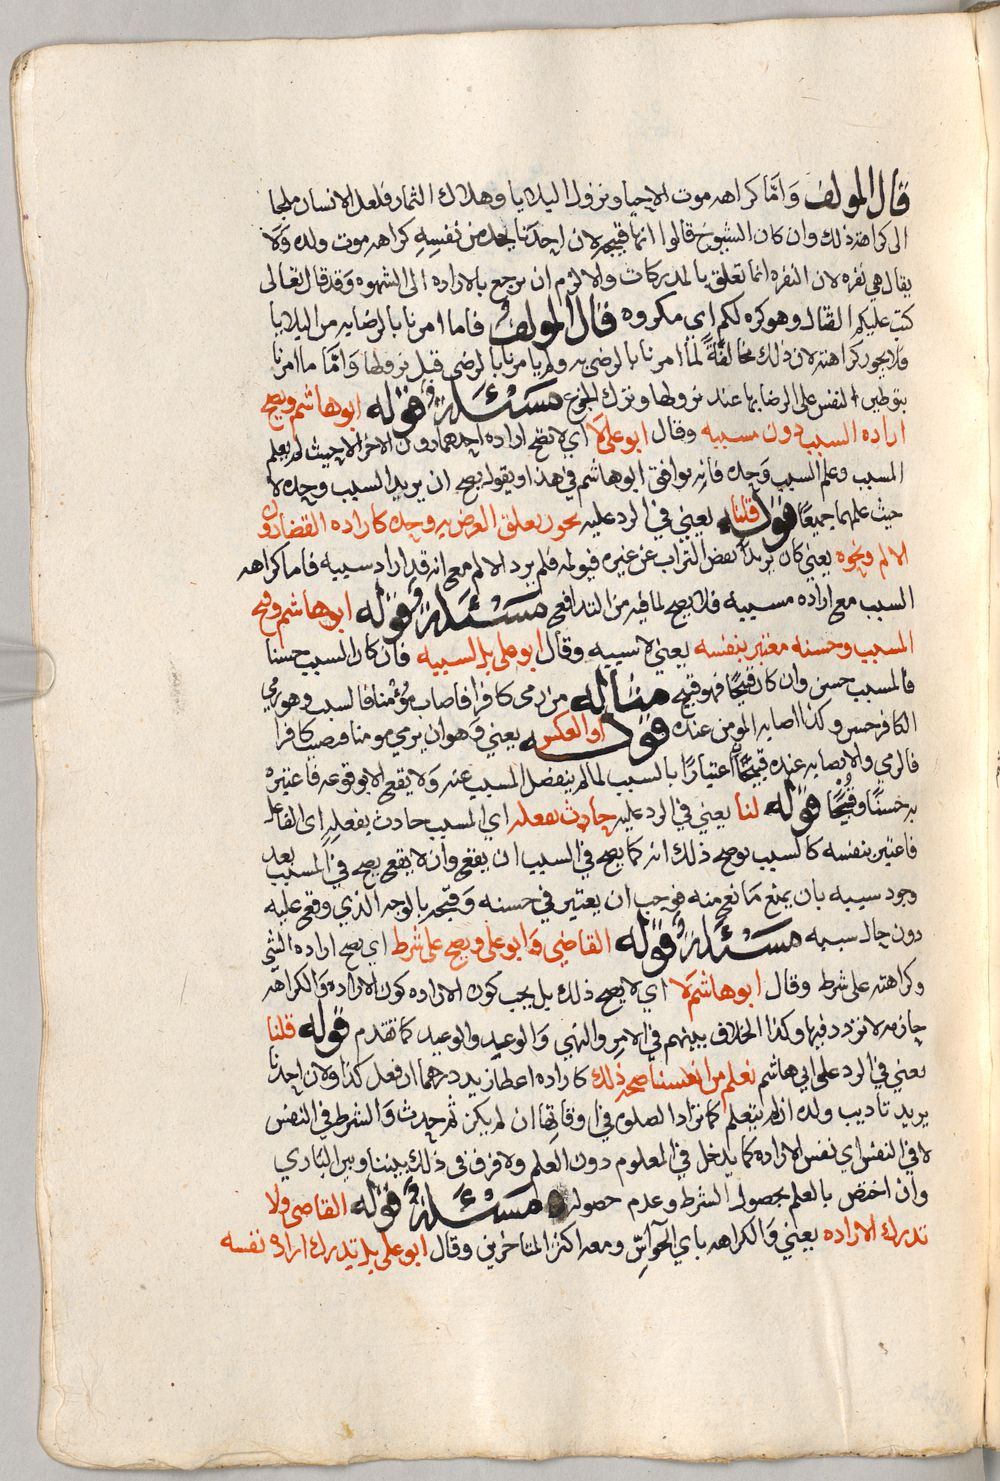 قال المولف وامّا كراهه موت الاحيا ونزول البلايا وهلاك الثمار فلعل الانسان ملجا
الى كراهة ذلك وان كان الشيوخ قالوا انها قبيحه لان احدنا يجد من نفسه كراهه موت ولده ولا
يقال هي نفره لان النفره انما تعلق بالمدركات والالزم ان نرجع بالاراده الى الشهوه وقد قال تعالى
كتب عليكم القتال وهو كره لكم اي مكروه قال المولف فاما امرنا بالرضا به من البلايا
فلا يجوز كراهته لان ذلك مخالفةً لما امرنا بالرضى به ولم يامرنا بالرضى قبل نزولها وامّا ما امرنا
بتوطين النفس على الرضا بها عند نزولها وترك الجزع مسئلة قوله ابو هاشم ويصح
اراده السبب دون مسببه وقال ابو علي لا اي لا تصح اراده احدهما دون الاخر الا حيث لم يعلم
المسبب وعلم السبب وحده فانه يوافق ابو هاشم في هذا ويقوله يصح ان يريد السبب وحده لا
حيث علمهما جميعًا قوله قلنا يعني في الرد عليه يجوز تعلق الغرض به وحده كاراده القضا دون
الالم ونحوه يعني كان يريد نفض التراب عن غيره فيولمه فلم يرد الالم مع انه قد اراد سببه فاما كراهه
السبب مع اراده مسببه فلا يصح لما فيه من التدافع مسئلة قوله ابو هاشم وقبح
المسبب وحسنه معتبر بنفسه يعني لا سببه وقال ابو علي بل لسببه فان كان السبب حسنا
فالمسبب حسن وان كان قبيحًا فهو قبيح مثاله من رمى كافرا فاصاب مؤمنا فالسبب وهو رمي
الكافر حسن وكذا اصابه المومن عنده قوله او العكس يعني وهو ان يرمي مومنا فيصيب كافرا
فالرمي والاصابه عنده قبيحًا اعتبارًا بالسبب لما لم ينفصل المسبب عنه ولا يقع الا بوقوعه فاعتبره
به حسنًا وقبحًا قوله لنا يعني في الرد عليه حادث بفعله اي المسبب حادث بفعله اي الفاعل
فاعتبر بنفسه كالسبب يوضح ذلك انه كما يصح في السبب ان يقع وان لا يقع يصح في المسبب بعد
وجود سببه بان يمنع مانع منه فوجب ان يعتبر في حسنه وقبحه بالوجه الذي وقع عليه
دون حال سببه مسئلة قوله القاضي وابو علي ويصح على شرط اي يصح اراده الشي
وكراهته على شرط وقال ابو هاشم لا اي لا يصح ذلك بل يجب كون الاراده والكراهه
جازمه لا تردد فيها وكذا الخلاف بينهم في الامر والنهي والوعد والوعيد كما تقدم قوله قلنا
يعني في الرد على ابي هاشم نعلم من انفسنا صحه ذلك كاراده اعطا زيد درهما ان فعل كذا ولان احدنا
يريد تاديب ولده ان لم يتعلم كما تراد الصلوة في اوقاتها ان لم يكن ثم حدث والشرط في النفس
لا في النفس اي نفس الاراده كما يدخل في المعلوم دون العلم ولا فرق في ذلك بيننا وبين الباري
وان اختص بالعلم بحصول الشرط وعدم حصوله مسئلة قوله القاضي ولا
تدرك الاراده يعني والكراهه باي الحواس ومعه اكثر المتاخرين وقال ابو علي بل تدرك اراده نفسه